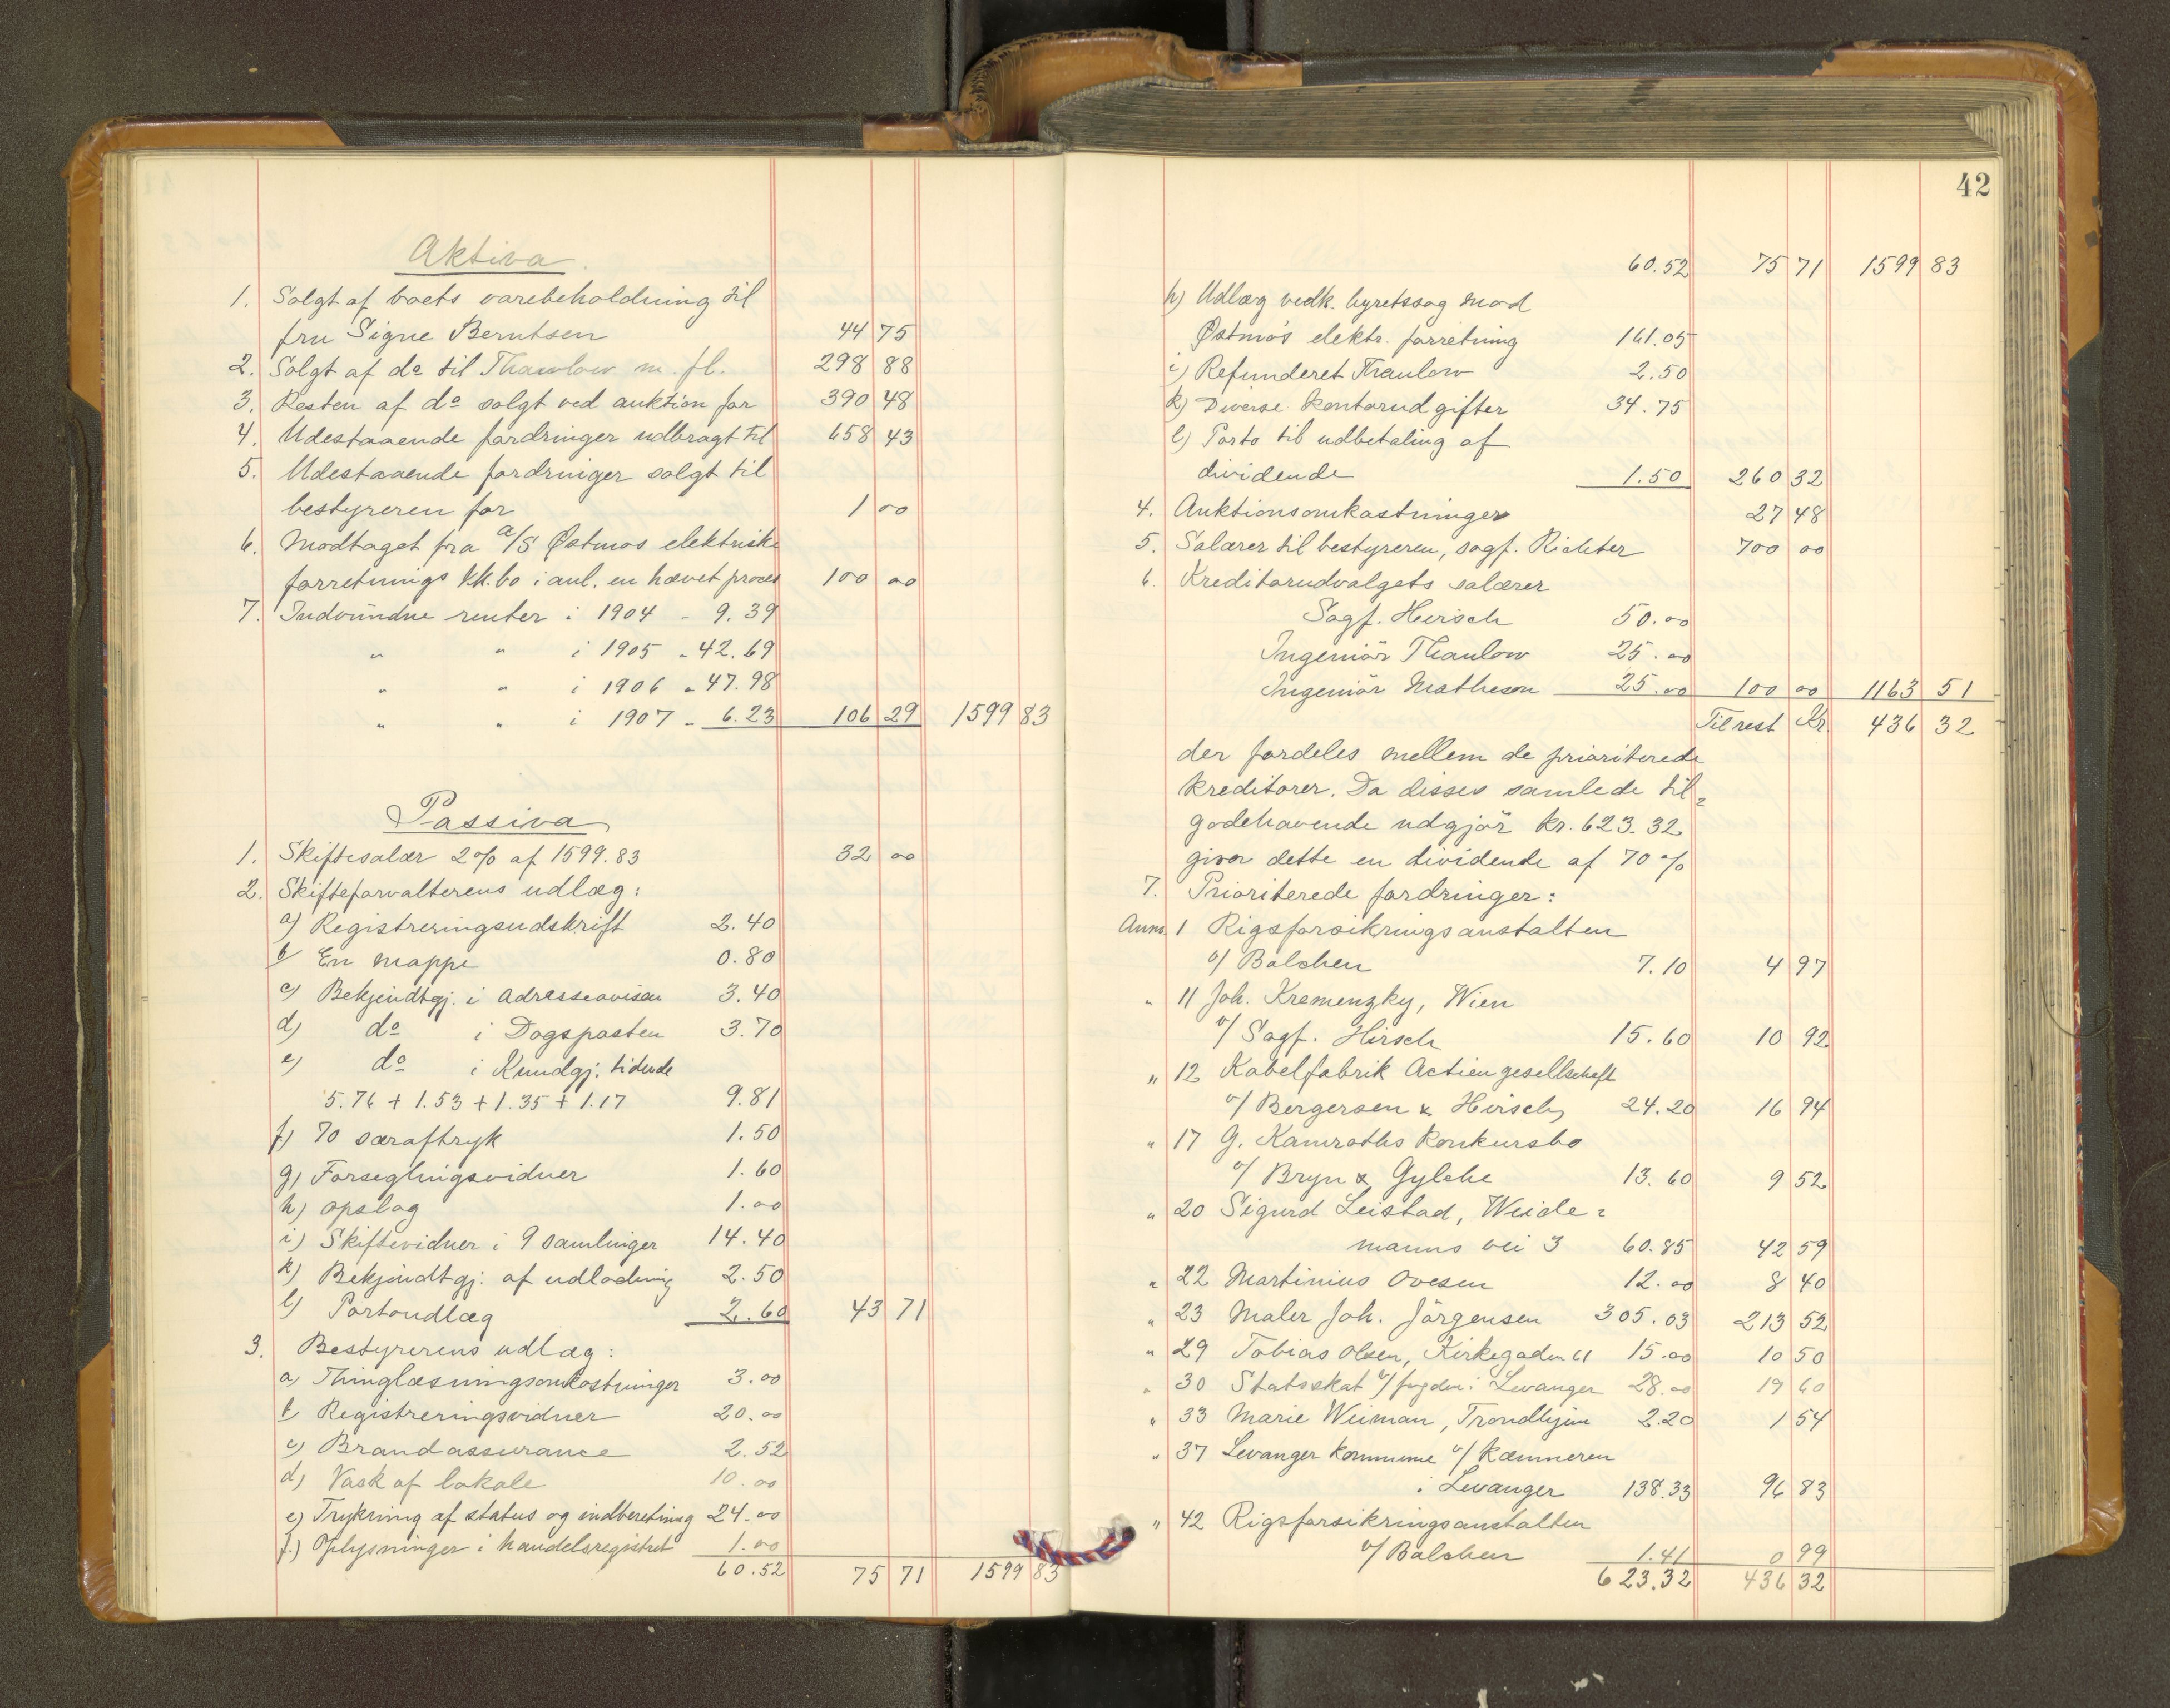 Aktiva.
1. Solgt af boets varebeholdning til
fru Signe Berntsen 44 75
2. Solgt af do til Thaulow m. fl. 298 88
3. Resten af do solgt ved auktion for 390 48
4. Udestaaende fordringer udbragt til 658 43
5. Udestaaende fordringer solgt til
bestyreren for 1 00
6. Modtaget fra A/S Østmos elektriske
forretnings kk.bo i anl. en hævet proces 100 00
7. Indvundne renter i 1904 - 9.39
" " i 1905 - 42.69
" " i 1906 - 47.98
" " i 1907 - 6.23 106 29 1599 83
Passiva
1. Skiftesalær 2% af 1599.83 32 00
2. Skifteforvalterens udlæg:
a) Registreringsudskrift 2.40
b) En mappe 0.80
c) Bekjendtgj. i Adresseavisen 3.40
d) do i Dagsposten 3.70
e) do i Kundgj. tidende
5.76 + 1.53 + 1.35 + 1.17 9.81
f) 70 særaftryk 1.50
g) Forseglingsvidner 1.60
h) opslag 1.00
i) Skiftevidner i 9 samlinger 14.40
k) Bekjendtgj. af udlodning 2.50
l) Portoudlæg 2.60 43 71
3. Bestyrerens udlæg:
a) Thinglæsningsomkostninger 3.00
b) Registreringsvidner 20.00
c) Brandassurance 2.52
d) Vask af lokale 10.00
e) Trykning af status og indberetning 24.00
f.) Oplysninger i handelsregistret 1.00
60.52 75 71 1599 83
42
60.52 75 71 1599 83
h) Udlæg vedk. byretssag mod
Østmo's elektr. forretning 161.05
i) Refunderet Thaulow 2.50
k) Diverse kontorudgifter 34.75
l) Porto til udbetaling af
dividende 1.50 260 32
4. Auktionsomkostninger 27 48
5. Salærer til bestyreren, sagf. Richter 700 00
6. Kreditorudvalgets salærer
Sagf. Hirsch 50.00
Ingeniør Thaulow 25.00
Ingeniør Matheson 25.00 100 00 1163 51
Til rest Kr. 436 32
der fordeles mellem de prioriterede
kreditorer. Da disses samlede til=
godehavende udgjør kr. 623.32
giver dette en dividende af 70%
7. Prioriterede fordringer:
Anm. 1 Rigsforsikringsanstalten
v/ Balchen 7.10 4 97
" 11 Joh. Kremenzky, Wien
v/ Sagf. Hirsch 15.60 10 92
" 12 Kabelfabrik Actiengesellschaft
v/ Bergersen & Hirsch, 24.20 16 94
" 17 G. Kamroths konkursbo
v/ Bryn & Gylche 13.60 9 52
" 20 Sigurd Leistad, Weide=
manns vei 3 60.85 42 59
" 22 Martinius Ovesen 12.00 8 40
" 23 Maler Joh. Jørgensen 305.03 213 52
" 29 Tobias Olsen, Kirkegaden 61 15.00 10 50
" 30 Statsskat v/ fogden i Levanger 28.00 19 60
" 33 Marie Weiman, Trondhjem 2.20 1 54
" 37 Levanger kommune v/ kæmneren
i Levanger 138.33 96 83
" 42 Rigsforsikringsanstalten
v/ Balchen 1.41 0 99
623.32 436 32